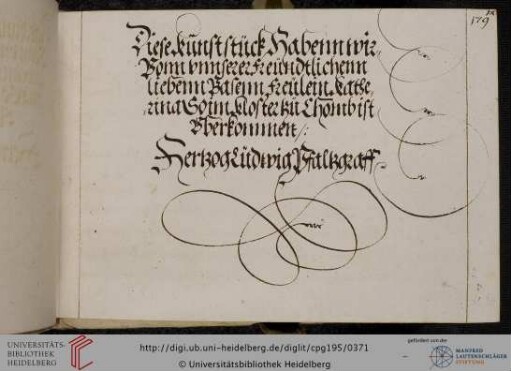 179
Diese kunst stück Habenn wir
Vonn vnnserer freündtlichenn
liebenn Basenn Freülein, Kathe,
rina So im Kloster zu Chomb ist
Vberkommen /:
Hertzog Lüdwig Pfaltzgraff
UNIVERSITÄTS-
BIBLIOTHEK
HEIDELBERG
http://digi.ub.uni-heidelberg.de/diglit/cpg195/0371
© Universitätsbibliothek Heidelberg
gefördert von der
MANFRED
LAUTENSCHLÄGER
STIFTUNG